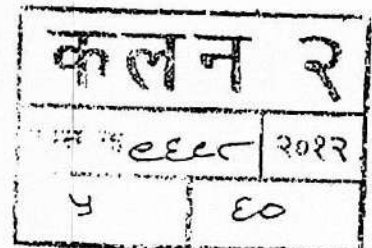 कलन २
९६९८ २०१२
५ ६०